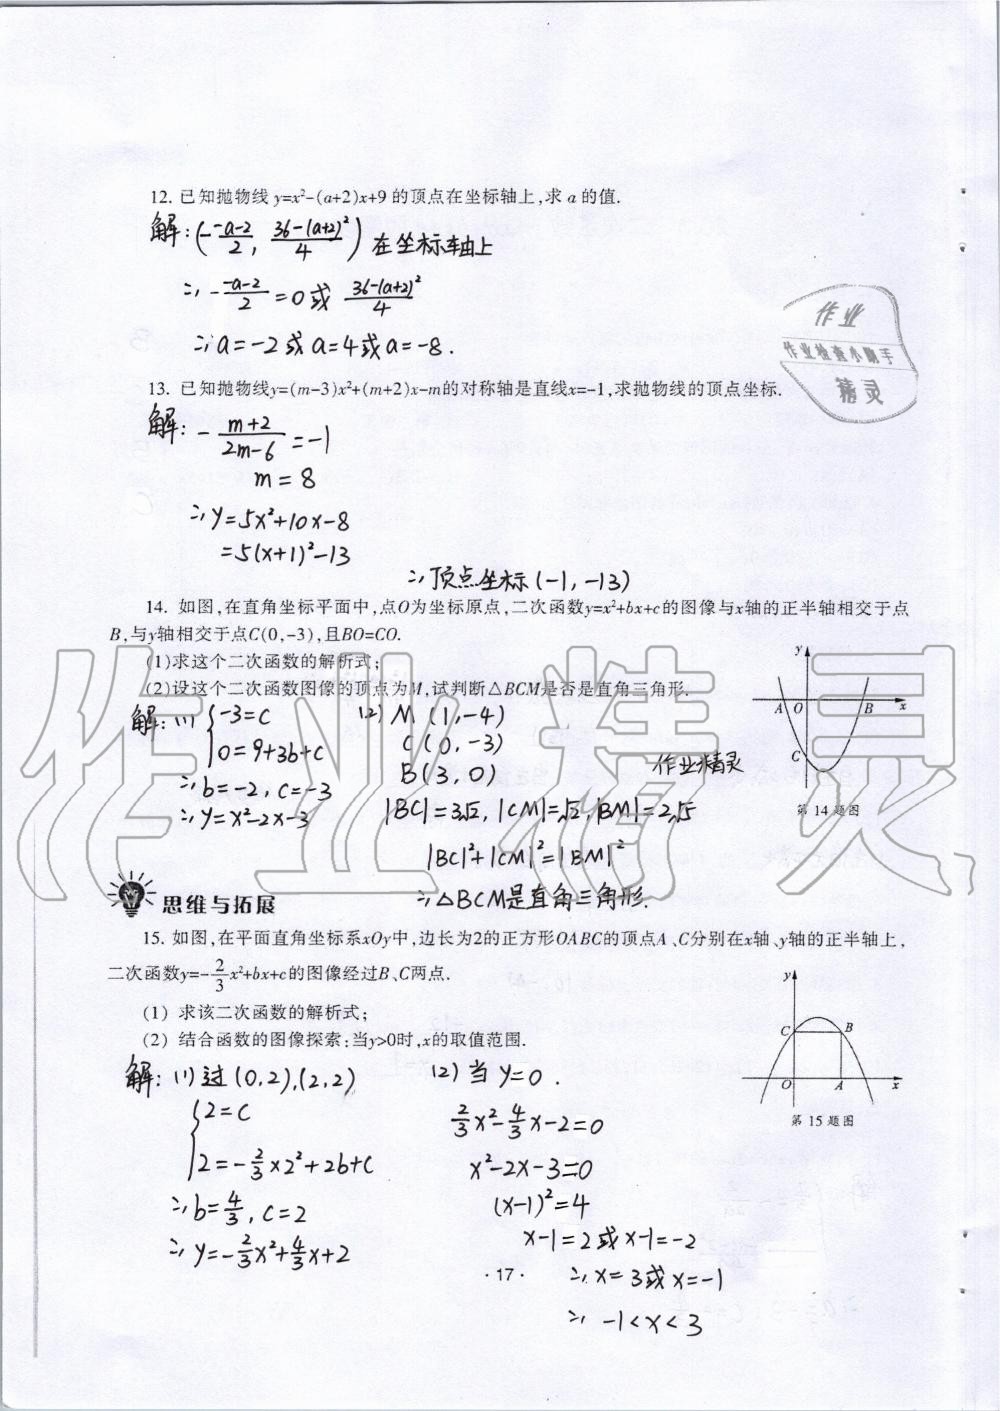 12. 已知抛物线 y=x²-(a+2)x+9 的顶点在坐标轴上,求 a 的值.
解: (-\frac{-a-2}{2}, \frac{36-(a+2)²}{4}) 在坐标轴上
∴ -\frac{-a-2}{2}=0或 \frac{36-(a+2)²}{4}
∴ a=-2或a=4或a=-8.
作业
作业检查小助手
精灵
13. 已知抛物线y=(m-3)x²+(m+2)x-m的对称轴是直线x=-1,求抛物线的顶点坐标.
解: -\frac{m+2}{2m-6}=-1
m=8
∴ y=5x²+10x-8
=5(x+1)²-13
∴ 顶点坐标(-1,-13)
14. 如图,在直角坐标平面中,点O为坐标原点,二次函数y=x²+bx+c的图像与x轴的正半轴相交于点
B,与y轴相交于点C(0,-3),且BO=CO.
(1)求这个二次函数的解析式;
(2)设这个二次函数图像的顶点为M,试判断△BCM是否是直角三角形.
解: (1) {-3=c
0=9+3b+c
∴ b=-2, c=-3
∴ y=x²-2x-3
(2) M (1,-4)
C (0,-3)
B(3,0)
|BC|=3√2, |CM|=√2, |BM|=2√5
|BC|²+|CM|²=|BM|²
∴ △BCM是直角三角形.
作业精灵
y
A O B x
C
第 14 题图
作业精灵
思维与拓展
15. 如图,在平面直角坐标系xOy中,边长为2的正方形OABC的顶点A、C分别在x轴、y轴的正半轴上,
二次函数y=-\frac{2}{3}x²+bx+c的图像经过B、C两点.
(1) 求该二次函数的解析式;
(2) 结合函数的图像探索:当y>0时,x的取值范围.
解: (1) 过(0,2),(2,2)
{2=c
2=-\frac{2}{3}×2²+2b+c
∴ b=\frac{4}{3}, c=2
∴ y=-\frac{2}{3}x²+\frac{4}{3}x+2
(2) 当y=0.
\frac{2}{3}x²-\frac{4}{3}x-2=0
x²-2x-3=0
(x-1)²=4
x-1=2或x-1=-2
∴ x=3或x=-1
∴ -1<x<3
y
C B
O A x
第 15 题图
·17·